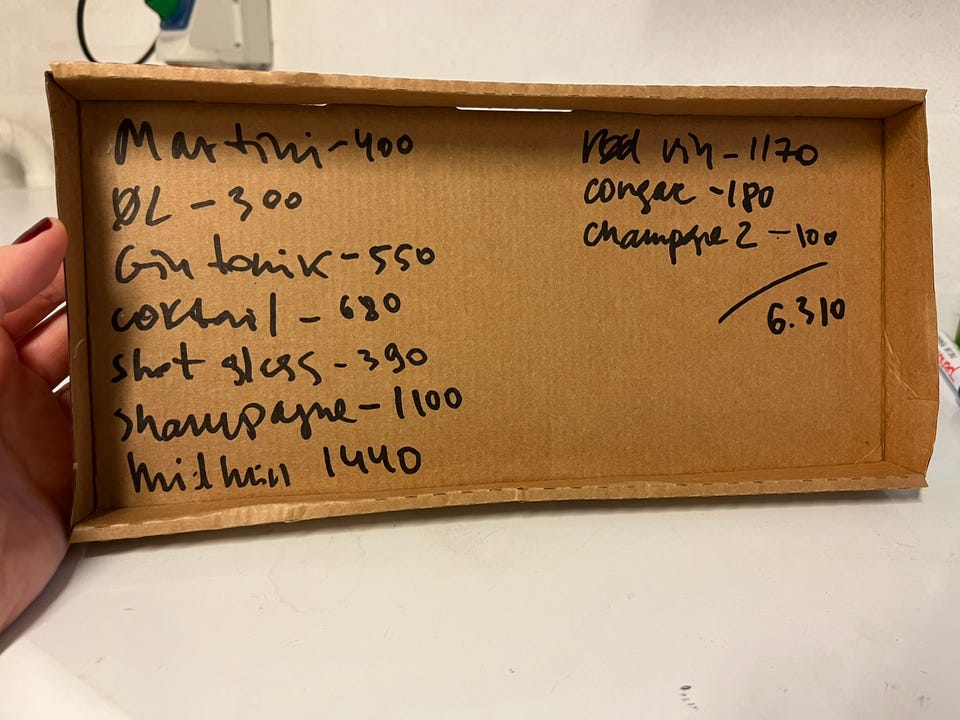 Martini - 400
ØL - 300
Gin tonik - 550
coktail - 680
shot glass - 390
shampagne - 1100
1440
rød vin - 1170
congac - 180
champagne 2 - 100
6.310